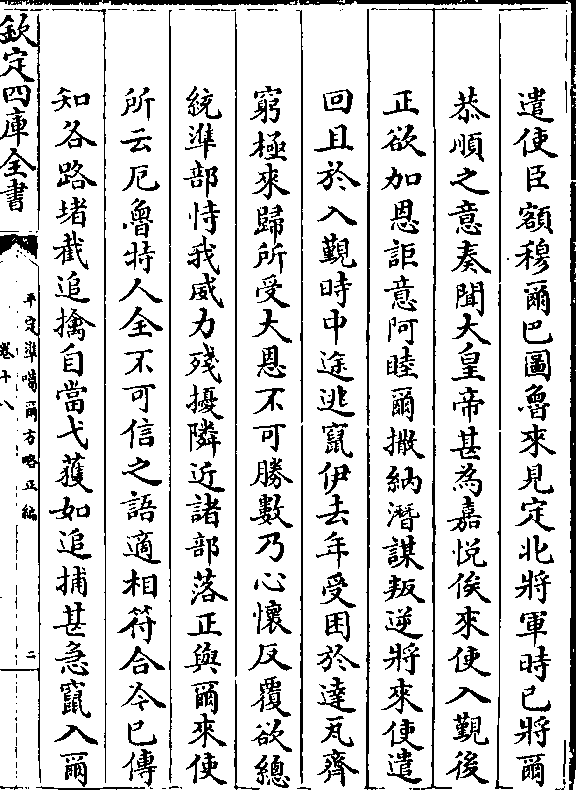 遣使臣額穆爾巴圖魯來見定北將軍時已將爾
恭順之意奏聞大皇帝甚為嘉悅俟來使入覲後
正欲加恩詎意阿睦爾撒納潛謀叛逆將來使遣
回且於入覲時中途逃竄伊去年受困於達瓦齊
窮極來歸所受大恩不可勝數乃心懷反覆欲總
統準部恃我威力殘擾隣近諸部落正與爾來使
所云厄魯特人全不可信之語適相符合今已傳
知各路堵截追擒自當弋獲如追捕甚急竄入爾
欽定四庫全書
平定準噶爾方略正編
卷十八
二